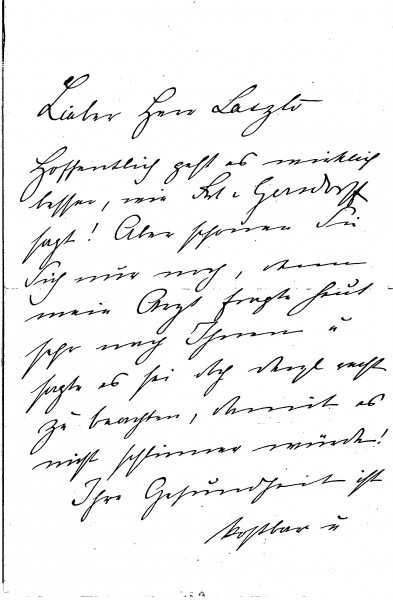 Lieber Herr Laszló
Hoffentlich geht es wirklich
besser, wie Frl v Gersdorff
sagt! Aber schonen Sie
Sich nur noch, denn
mein Arzt fragte heut
sehr nach Ihnen u
sagte es sei doch recht
zu beachten, damit es
nicht schlimmer würde!
Ihre Gesundheit ist
kostbar u